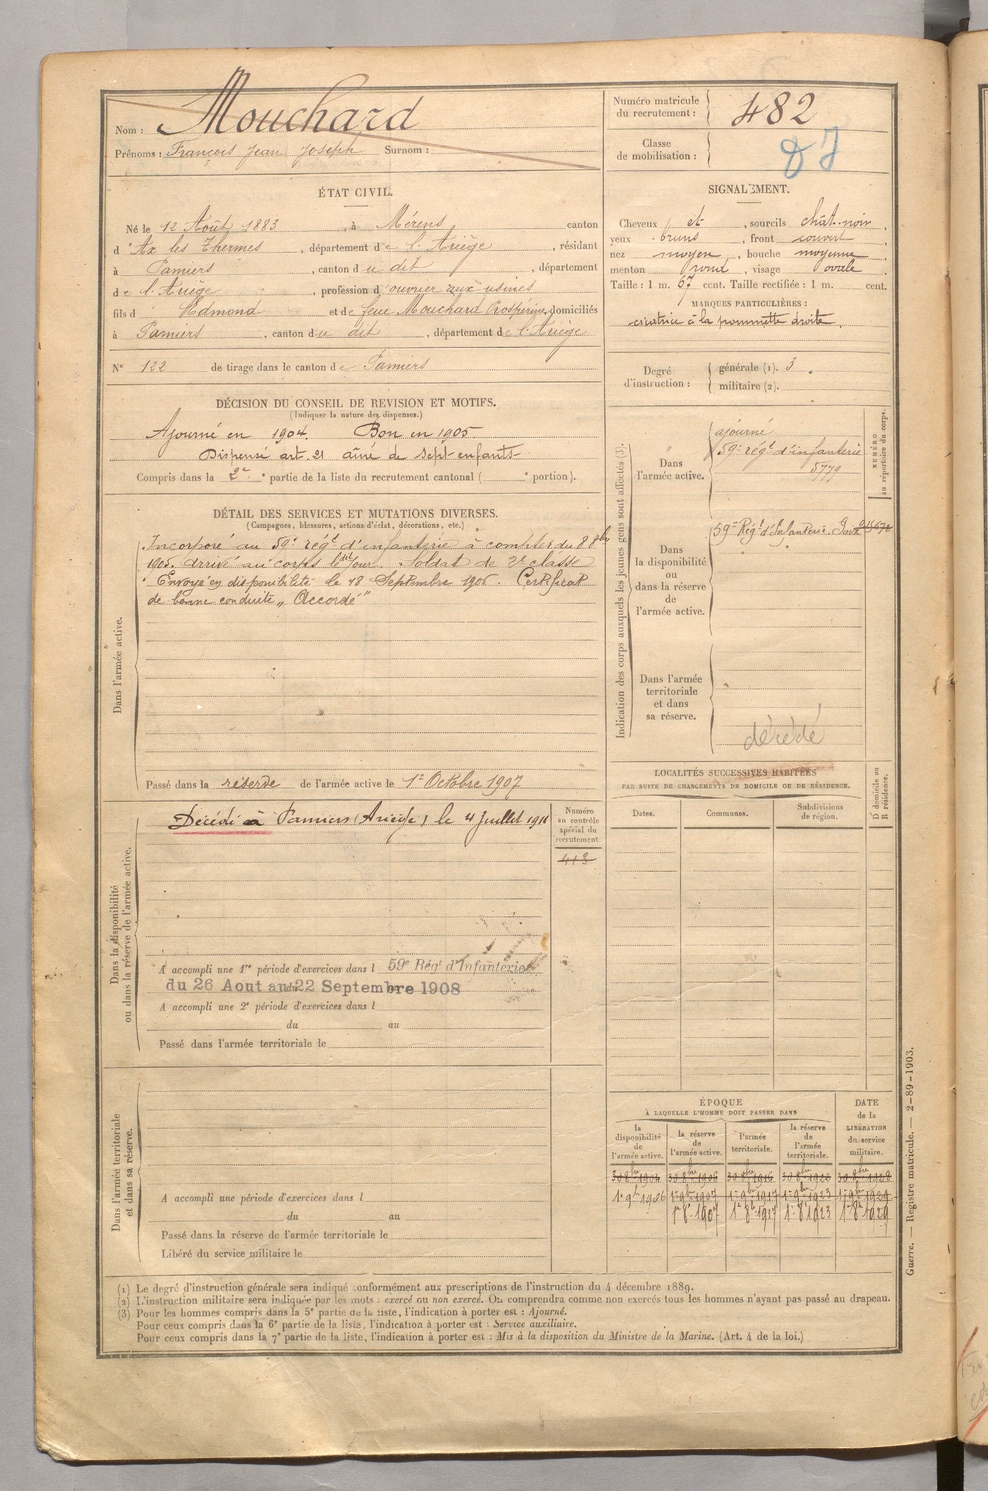 Nom : Mouchard
Prénoms : François Jean Joseph Surnom :
Numéro matricule du recrutement : 482
Classe de mobilisation :
ÉTAT CIVIL.
Né le 12 Août 1883, à Mérens canton
d'Ax les Thermes, département de l'Ariège, résidant
à Pamiers, canton du dit, département
de l'Ariège, profession d'ouvrier aux usines
fils d'Edmond et de feue Mouchard Prospérine, domiciliés
à Pamiers, canton du dit, département de l'Ariège
N° 122 de tirage dans le canton de Pamiers
SIGNALEMENT.
Cheveux et, sourcils chât-noir,
yeux bruns, front couvert
nez moyen, bouche moyenne
menton rond, visage ovale
Taille : 1 m. 67 cent. Taille rectifiée : 1 m. cent.
MARQUES PARTICULIÈRES :
cicatrice à la pommette droite.
Degré d'instruction : générale (1). 3.
militaire (2).
DÉCISION DU CONSEIL DE REVISION ET MOTIFS.
(Indiquer la nature des dispenses.)
Ajourné en 1904. Bon en 1905
Dispensé art. 21 aîné de sept enfants
Compris dans la 2e partie de la liste du recrutement cantonal ( portion).
DÉTAIL DES SERVICES ET MUTATIONS DIVERSES.
(Campagnes, blessures, actions d'éclat, décorations, etc.)
Dans l'armée active.
Incorporé au 59e régt d'infanterie à compter du 8 8bre
1905. Arrivé au corps le dit jour. Soldat de 2e classe
Envoyé en disponibilité le 18 Septembre 1906. Certificat
de bonne conduite „ Accordé"
Passé dans la réserve de l'armée active le 1er Octobre 1907
Indication des corps auxquels les jeunes gens sont affectés (3).
NUMÉRO au répertoire du corps.
Dans l'armée active.
ajourné
59e régt d'infanterie
5779
Dans la disponibilité ou dans la réserve de l'armée active.
59e Régt d'Infanterie.
Dans l'armée territoriale et dans sa réserve.
décédé
Dans la disponibilité ou dans la réserve de l'armée active.
Décédé à Pamiers (Ariège) le 4 Juillet 1911
Numéro au contrôle spécial du recrutement
413
A accompli une 1re période d'exercices dans l 59e Régt d'Infanterie
du 26 Aout au 22 Septembre 1908
A accompli une 2e période d'exercices dans l
du au
Passé dans l'armée territoriale le
LOCALITÉS SUCCESSIVES HABITÉES
PAR SUITE DE CHANGEMENTS DE DOMICILE OU DE RÉSIDENCE.
Dates. Communes. Subdivisions de région. D domicile ou R résidence.
Dans l'armée territoriale et dans sa réserve.
A accompli une période d'exercices dans l
du au
Passé dans la réserve de l'armée territoriale le
Libéré du service militaire le
ÉPOQUE
À LAQUELLE L'HOMME DOIT PASSER DANS
la disponibilité de l'armée active. la réserve de l'armée active. l'armée territoriale. la réserve de l'armée territoriale. DATE de la LIBÉRATION du service militaire.
1er 9bre 1906 1er 9bre 1907 1er 9bre 1917 1er 9bre 1923 1er 9bre 1929
1er 8bre 1907 1er 8bre 1917 1er 8bre 1923 1er 8bre 1929
Guerre. — Registre matricule. — 2-89-1903.
(1) Le degré d'instruction générale sera indiqué conformément aux prescriptions de l'instruction du 4 décembre 1889.
(2) L'instruction militaire sera indiquée par les mots : exercé ou non exercé. On comprendra comme non exercés tous les hommes n'ayant pas passé au drapeau.
(3) Pour les hommes compris dans la 5e partie de la liste, l'indication à porter est : Ajourné.
Pour ceux compris dans la 6e partie de la liste, l'indication à porter est : Service auxiliaire.
Pour ceux compris dans la 7e partie de la liste, l'indication à porter est : Mis à la disposition du Ministre de la Marine. (Art. 4 de la loi.)